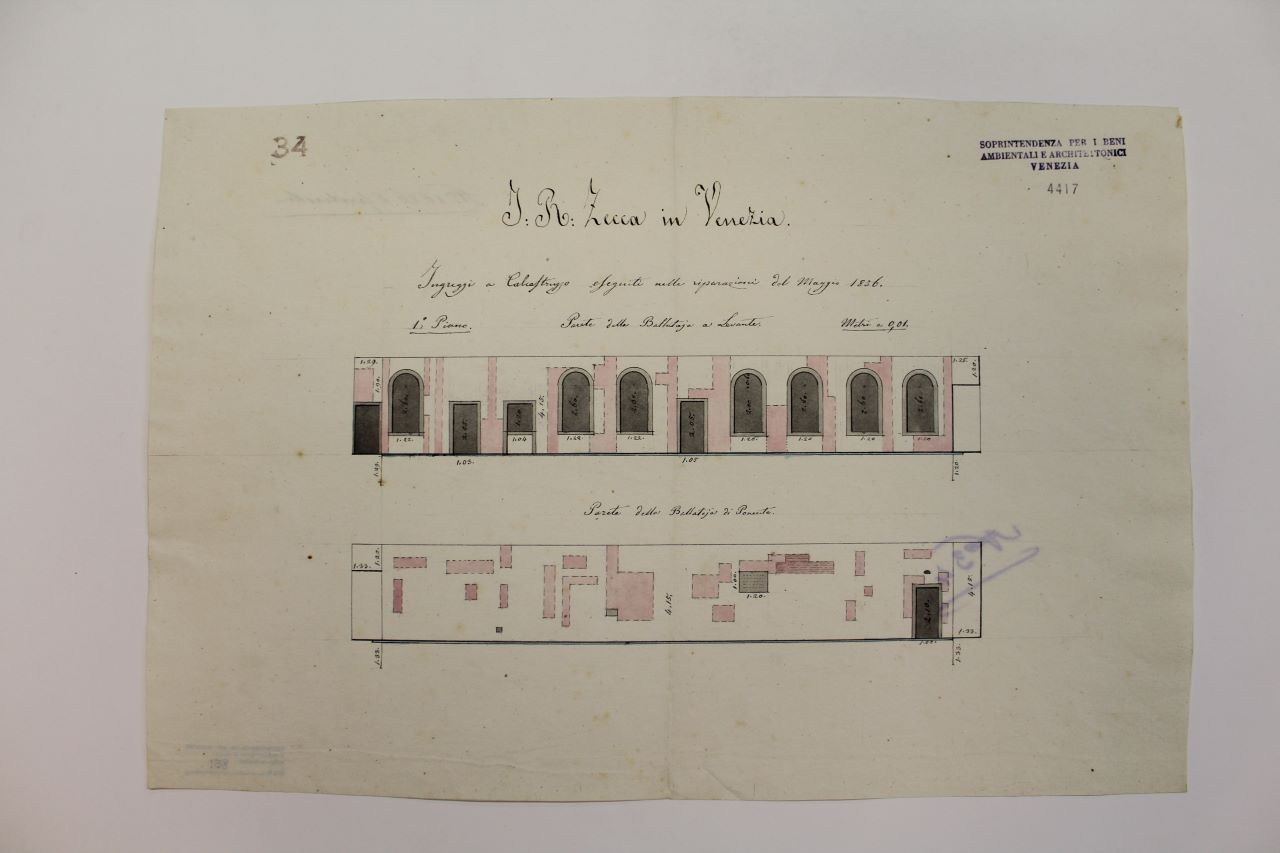 34
SOPRINTENDENZA PER I BENI
AMBIENTALI E ARCHITETTONICI
VENEZIA
4417
I: R: Zecca in Venezia.
Ingreggi a Calcestruzzo eseguiti nelle riparazioni del Maggio 1836.
1.º Piano. Parete della Ballatoja a Levante. Metri a 0,01.
1.29. 1.25.
1.90. 1.20.
2.60. 2.05. 1.20 4.15. 2.60. 2.60. 2.05. 2.60. 2.60. 2.60.
1.22. 1.04 1.22. 1.22. 1.20. 1.20 1.20 1.20
1.03. 1.05
1.20
Parete della Ballatoja di Ponente.
1.33. 1.20. 1.00. 1.20. 4.15. 2.10. 4.15.
1.33.
1.33. 1.33.
158